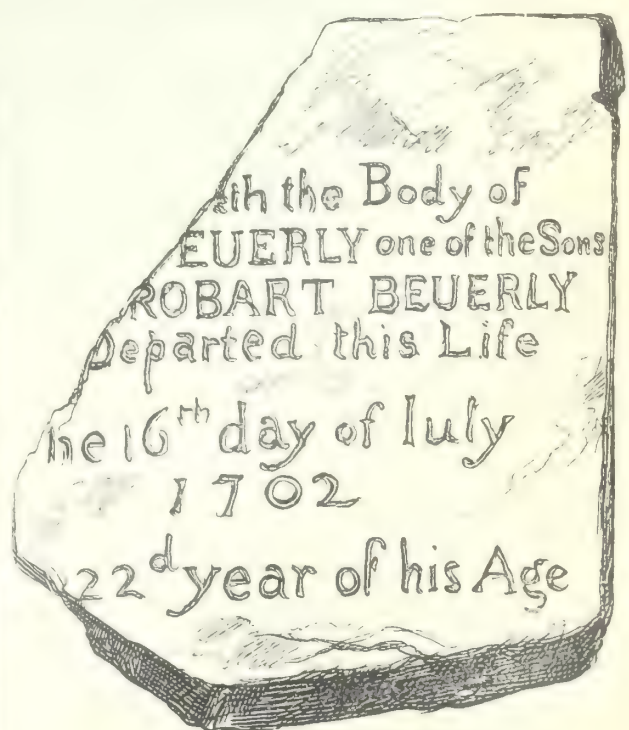 eth the Body of
EUERLY one of the Sons
ROBART BEUERLY
Departed this Life
he 16th day of Iuly
1702
22d year of his Age